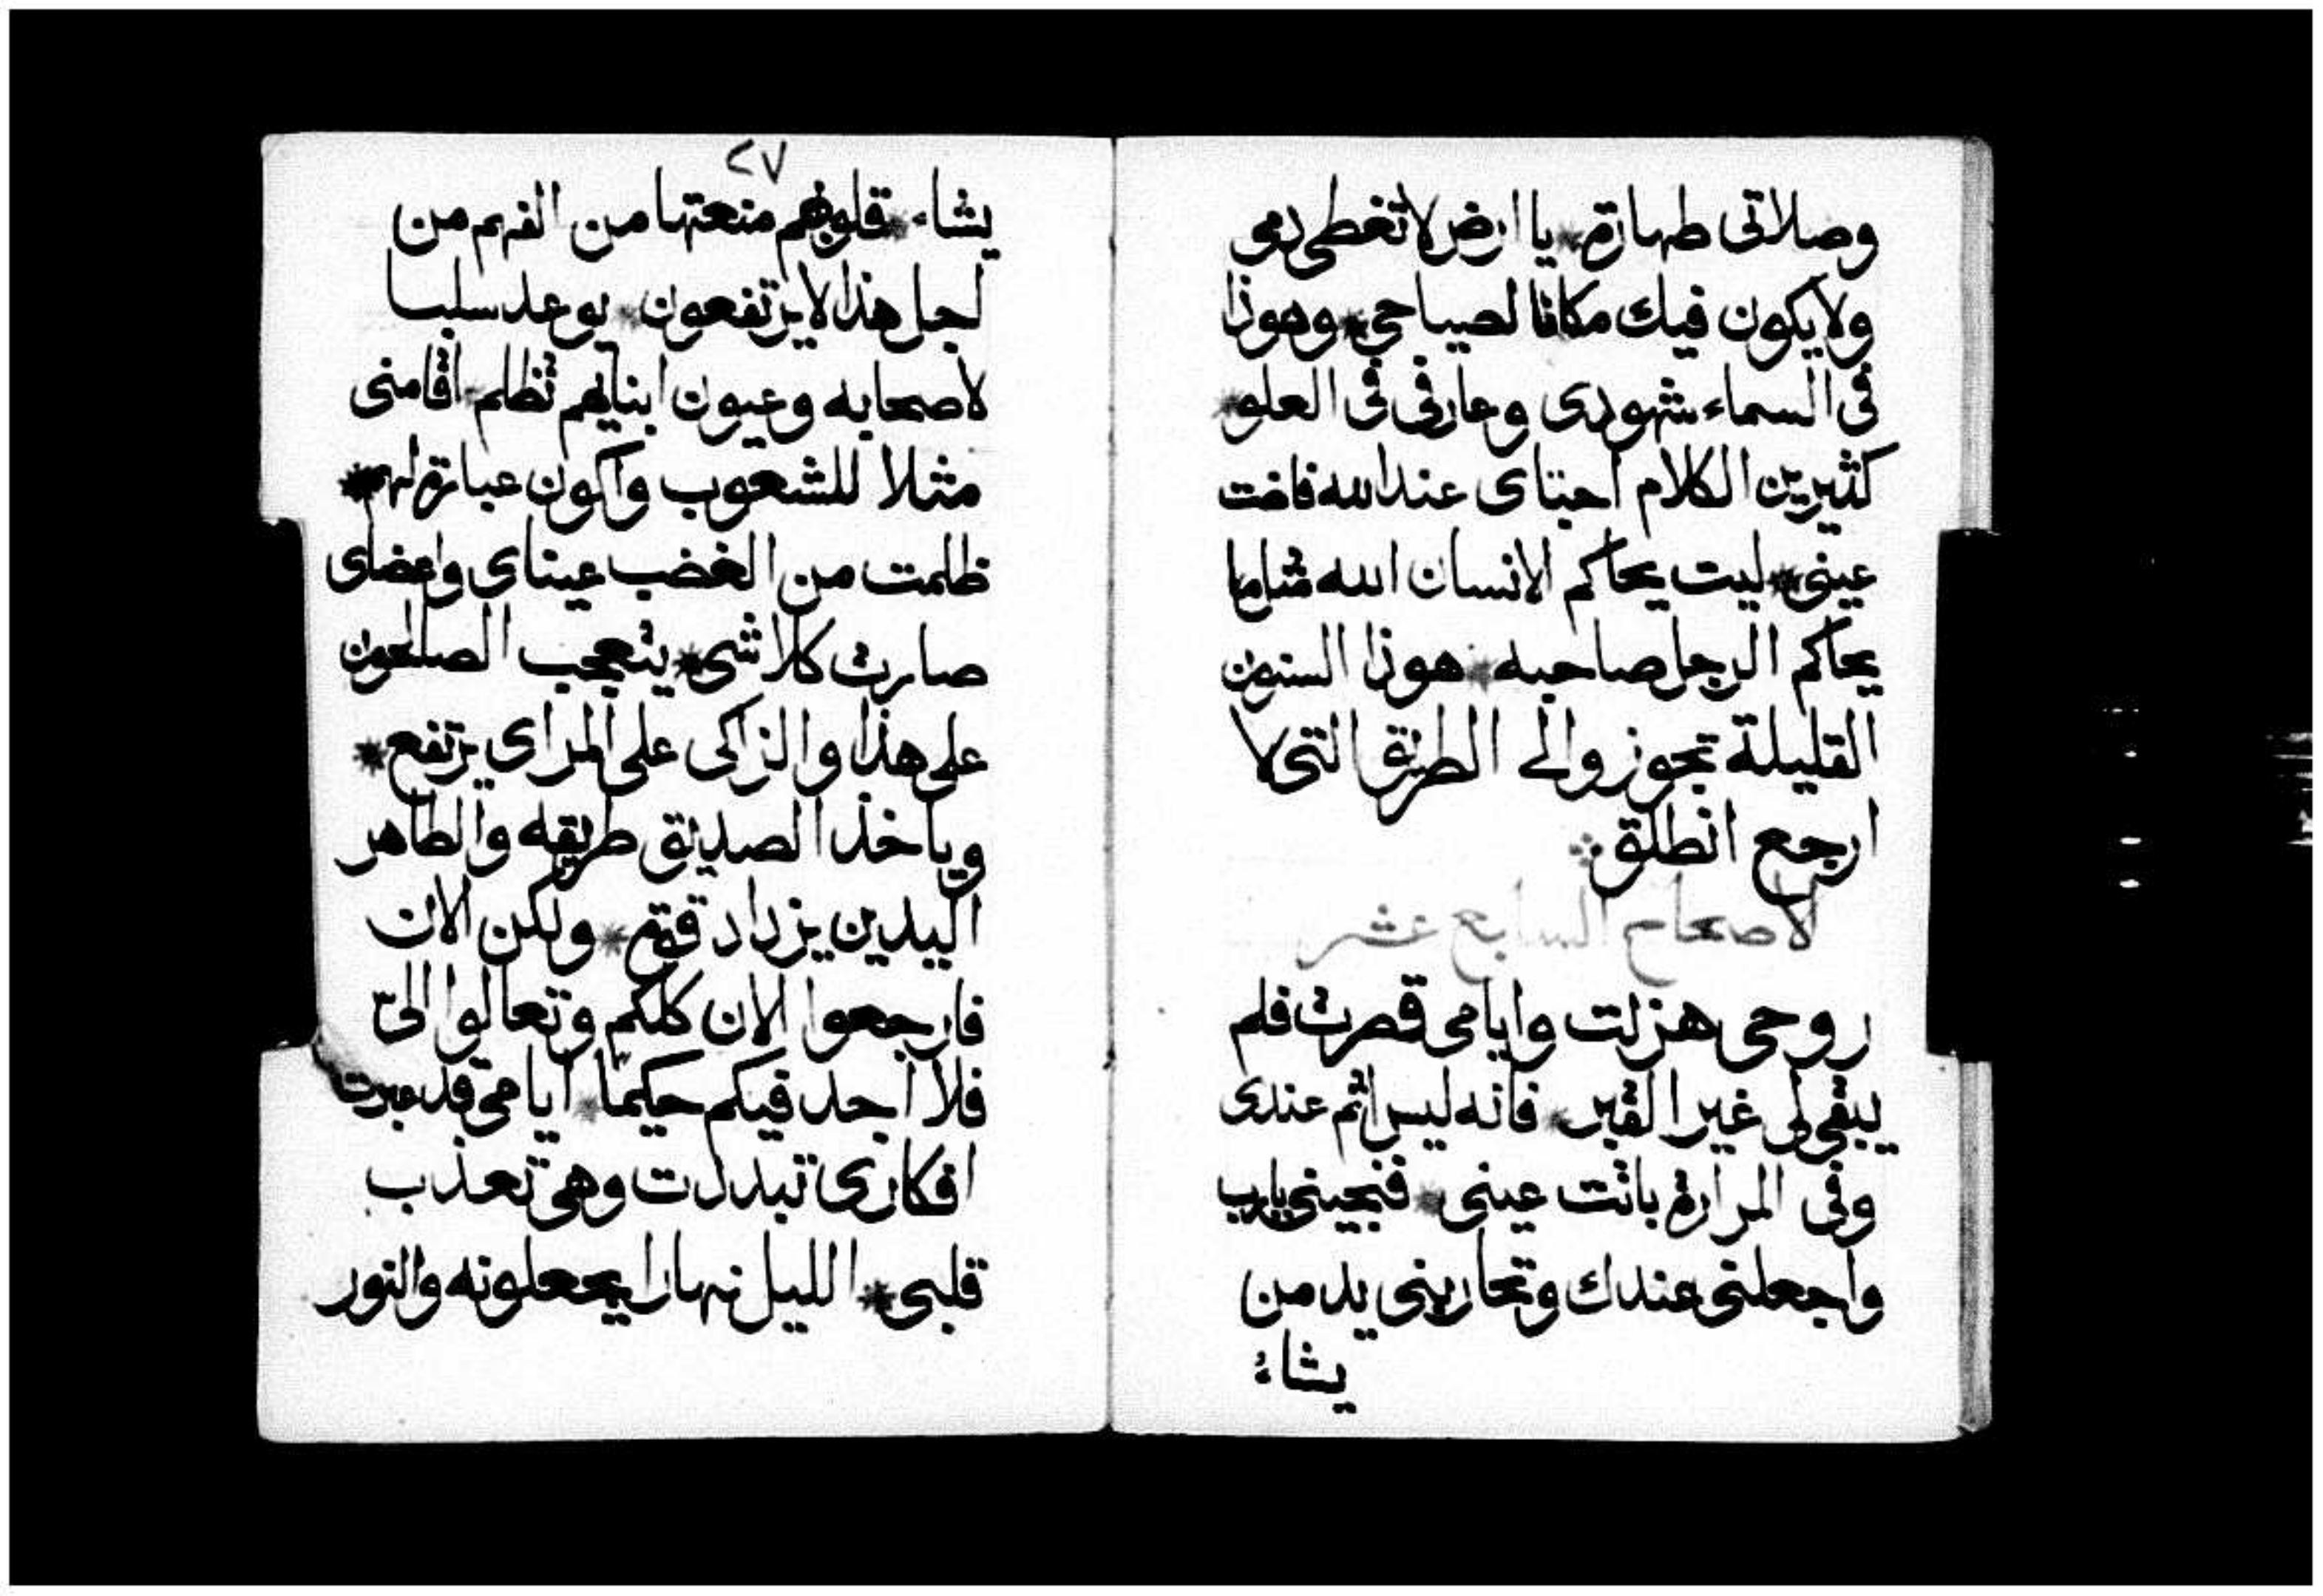 وصلاتى طهارة * يا ارض لا تغطى دمى
ولا يكون فيك مكانا لصياحي * وهوذا
فى السماء شهودى وعارفى فى العلو *
كثيرين الكلام احباى عند الله فاضت
عينى * ليت يحاكم الانسان الله مثلما
يحاكم الرجل صاحبه * هوذا السنون
القليلة تجوز والى الطريق التى لا
ارجع انطلق
لاصحاح السابع عشر
روحى هزلت وايامى قصرت فلم
يبقى لى غير القبر * فانه ليس اثم عندى
وفى المرارة باتت عينى * فنجينى يارب
واجعلنى عندك وتحاربنى يد من
يشاءُ
٢٧
يشاء * قلوبهم منعتها من الفهم من
اجل هذا لا يرتفعون * يوعد سلبا
لاصحابه وعيون ابنايهم تظلم * اقامنى
مثلا للشعوب واكون عبارة لهم *
ظلمت من الغضب عيناى واعضاى
صارت كلاشى * يتعجب الصالحون
على هذا والزاكى على المراى يرتفع *
وياخذ الصديق طريقه والطاهر
اليدين يزداد قوة * ولكن الان
فارجعوا الان كلكم وتعالوا الىّ
فلا اجد فيكم حكيمًا * ايامى قد عبرت
افكارى تبددت وهى تعذب
قلبى * الليل نهارا يجعلونه والنور